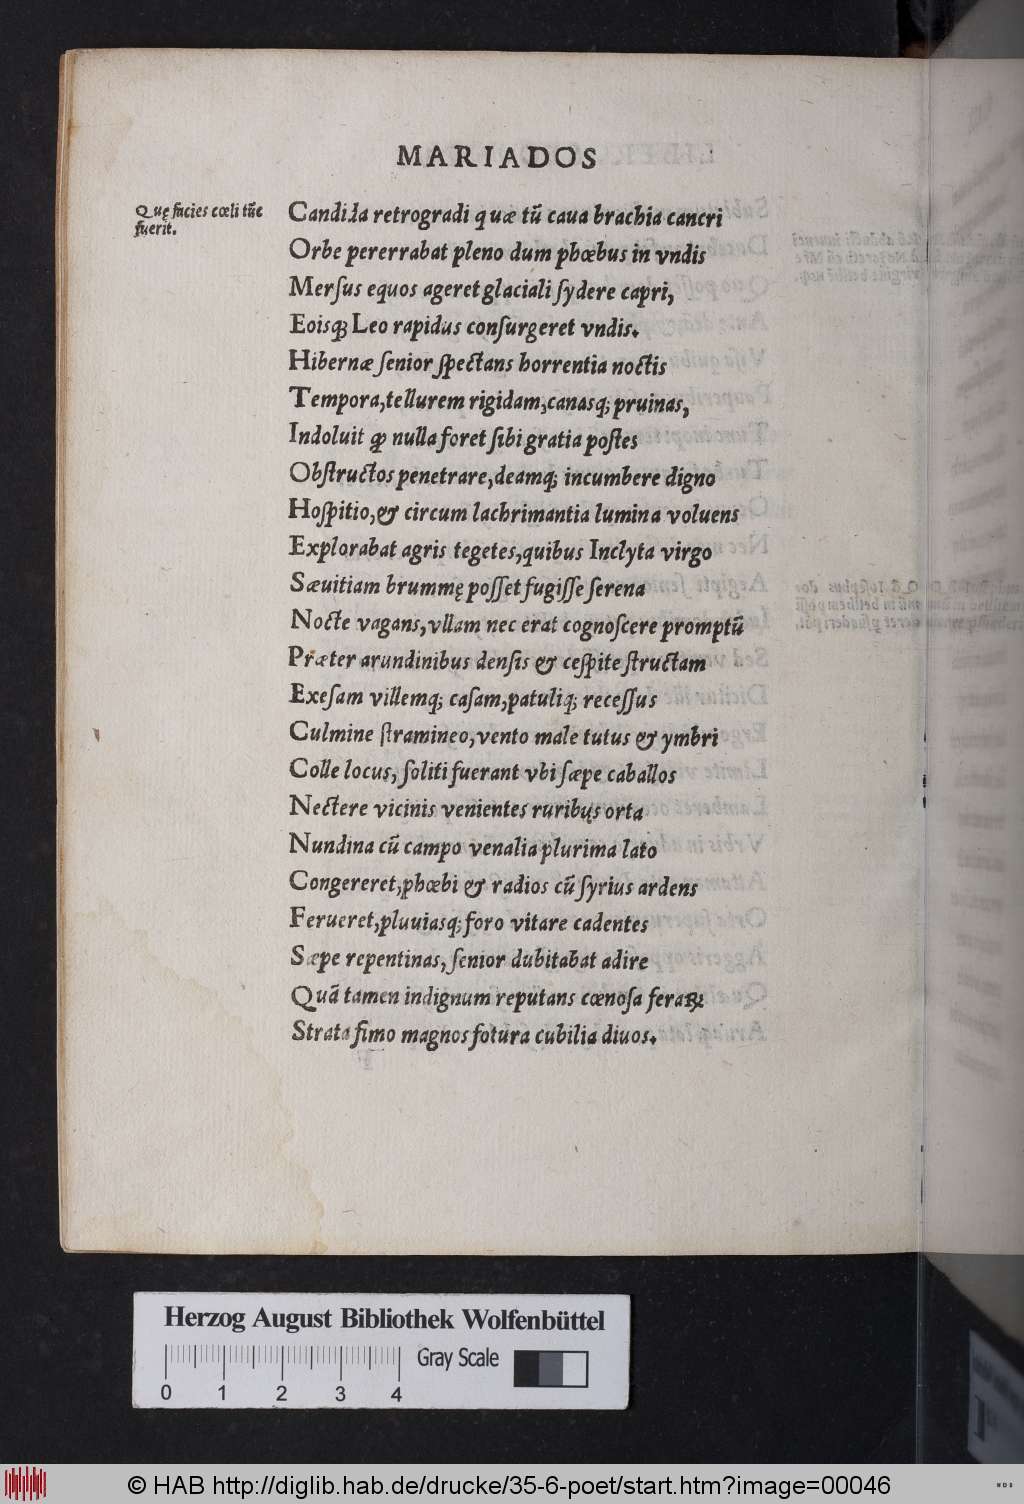 MARIADOS
Quę facies cœli tūc
fuerit.
Candida retrogradi quæ tū caua brachia cancri
Orbe pererrabat pleno dum phœbus in vndis
Mersus equos ageret glaciali sydere capri,
Eoisq; Leo rapidus consurgeret vndis.
Hibernæ senior spectans horrentia noctis
Tempora, tellurem rigidam, canasq; pruinas,
Indoluit ꝙ nulla foret sibi gratia postes
Obstructos penetrare, deamq; incumbere digno
Hospitio, & circum lachrimantia lumina voluens
Explorabat agris tegetes, quibus Inclyta virgo
Sæuitiam brummę posset fugisse serena
Nocte vagans, vllam nec erat cognoscere promptū
Præter arundinibus densis & cespite structam
Exesam villemq; casam, patuliq; recessus
Culmine stramineo, vento male tutus & ymbri
Colle locus, soliti fuerant vbi sæpe caballos
Nectere vicinis venientes ruribus orta
Nundina cū campo venalia plurima lato
Congereret, phœbi & radios cū syrius ardens
Ferueret, pluuiasq; foro vitare cadentes
Sæpe repentinas, senior dubitabat adire
Quā tamen indignum reputans cœnosa feraꝝ
Strata fimo magnos fotura cubilia diuos.
Herzog August Bibliothek Wolfenbüttel
Gray Scale
0 1 2 3 4
© HAB http://diglib.hab.de/drucke/35-6-poet/start.htm?image=00046